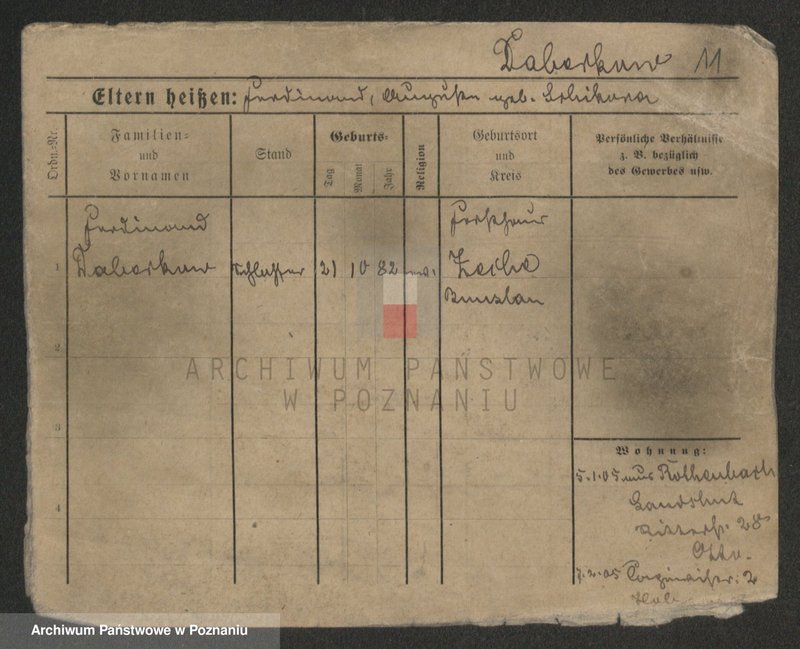 Daberkow 11
Eltern heißen: Ferdinand, Auguste geb.
Ordn.-Nr.
Familien-
und
Vornamen
Stand
Geburts-
Tag
Monat
Jahr
Religion
Geburtsort
und
Kreis
Persönliche Verhältnisse
z. B. bezüglich
des Gewerbes usw.
1
Ferdinand
Daberkow
Schlosser
21
10
82
ev.
Zeche
Bunzlau
2
3
4
ARCHIWUM PAŃSTWOWE
W POZNANIU
Wohnung:
5.1.05 aus Rothenbach
Landshut
Ritterstr. 28
Otto.
7.2.05 2
Archiwum Państwowe w Poznaniu